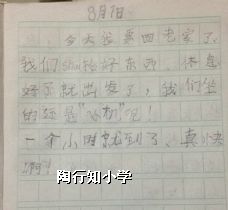 8月1日
今天我要回老家了,
我们shōu拾好东西,休息
好了就出发了,我们坐
的还是"动"呢!
一个小时就到了,真快
啊!
陶行知小学